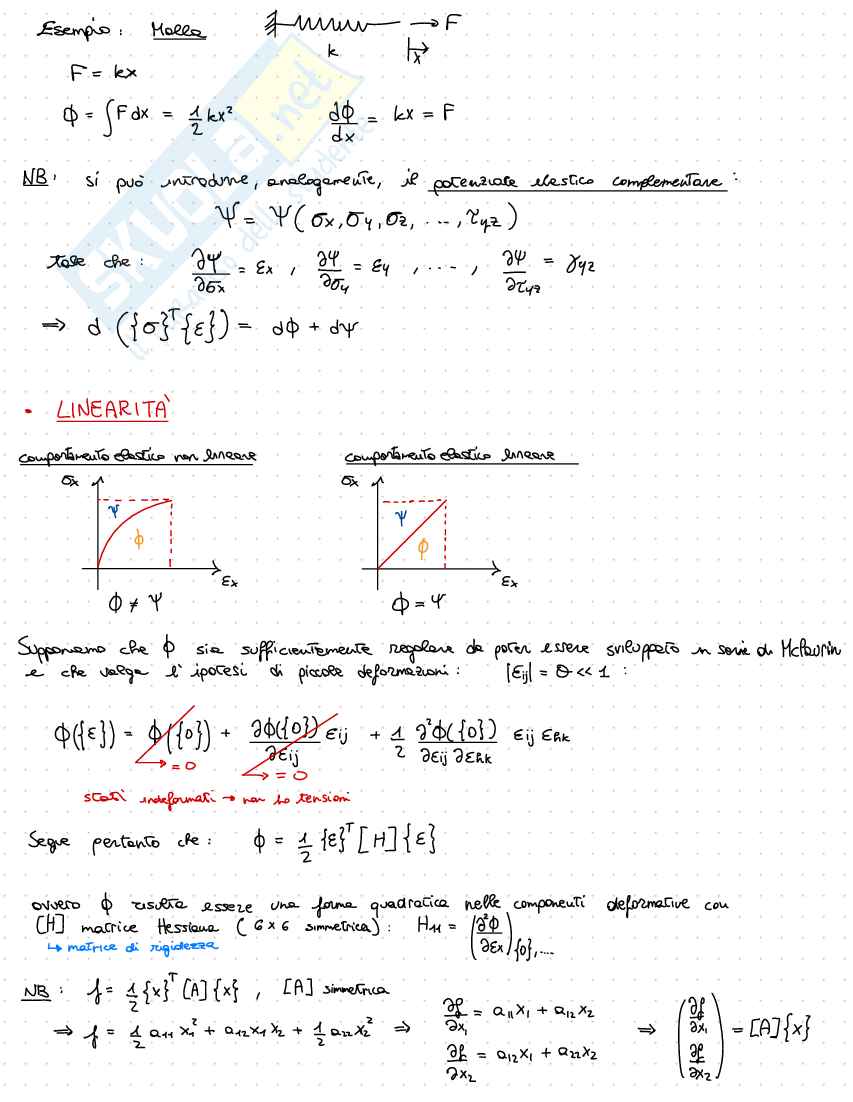 Esempio: Molla
F
k
x
F = kx
ϕ = ∫F dx = 1/2 kx² dϕ/dx = kx = F
NB: si può introdurre, analogamente, il potenziale elastico complementare:
Ψ = Ψ(σx, σy, σz, ..., τyz)
tale che: ∂Ψ/∂σx = εx, ∂Ψ/∂σy = εy, ..., ∂Ψ/∂τyz = γyz
⇒ d({σ}ᵀ{ε}) = dϕ + dΨ
• LINEARITÀ
comportamento elastico non lineare comportamento elastico lineare
σx Ψ ϕ εx σx Ψ ϕ εx
ϕ ≠ Ψ ϕ = Ψ
Supponiamo che ϕ sia sufficientemente regolare da poter essere sviluppato in serie di McLaurin
e che valga l'ipotesi di piccole deformazioni: |εij| = θ << 1 :
ϕ({ε}) = ϕ({0}) + ∂ϕ({0})/∂εij εij + 1/2 ∂²ϕ({0})/∂εij ∂εhk εij εhk
→ = 0 → = 0
stati indeformati → non ho tensioni
Segue pertanto che: ϕ = 1/2 {ε}ᵀ[H]{ε}
ovvero ϕ risulta essere una forma quadratica nelle componenti deformative con
[H] matrice Hessiana (6×6 simmetrica): H₁₁ = (∂²ϕ/∂εx){0},....
↳ matrice di rigidezza
NB: f = 1/2 {x}ᵀ[A]{x}, [A] simmetrica
⇒ f = 1/2 a₁₁ x₁² + a₁₂x₁x₂ + 1/2 a₂₂x₂² ⇒ ∂f/∂x₁ = a₁₁x₁ + a₁₂x₂ ⇒ (∂f/∂x₁ ∂f/∂x₂) = [A]{x}
∂f/∂x₂ = a₁₂x₁ + a₂₂x₂
SKUOLA.net